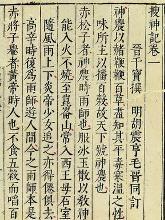 搜神記卷一
晉干寶撰　明胡震亨毛晉同訂
神農以赭鞭鞭百草盡知其平毒寒溫之性臭
味所主以播百穀故天下號神農也
赤松子者神農時雨師也服冰玉散以教神農
能入火不燒至崑崙山常入西王母石室中
隨風雨上下炎帝少女追之亦得仙俱去至
高辛時復為雨師遊人間今之雨師本是焉
赤將子轝者黃帝時人也不食五穀而啗百